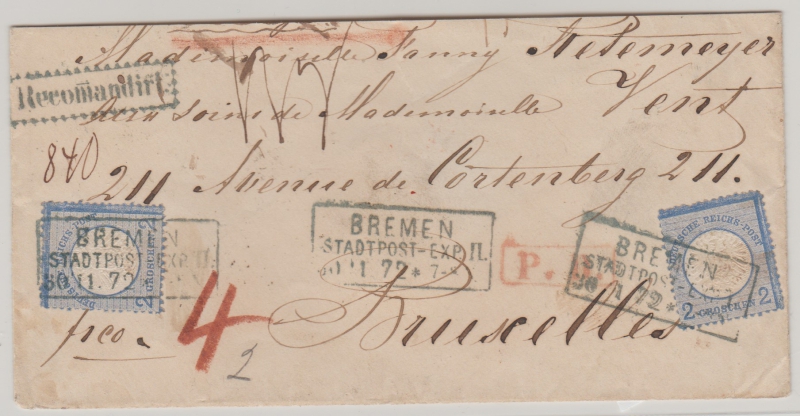 Mademoiselle Fanny Nelemeyer
Recomandirt
aux soins de Mademoiselle Vent
840
211 Avenue de Cortenberg 211.
BREMEN
STADTPOST-EXP. II.
30 11 72
DEUTSCHE REICHS-POST
2 GROSCHEN 2
BREMEN
STADTPOST-EXP. II.
30 11 72 * 7-8
P.
BREMEN
STADTPOST
30 11 72 *
DEUTSCHE REICHS-POST
2 GROSCHEN 2
Bruxelles
fco.
4
2